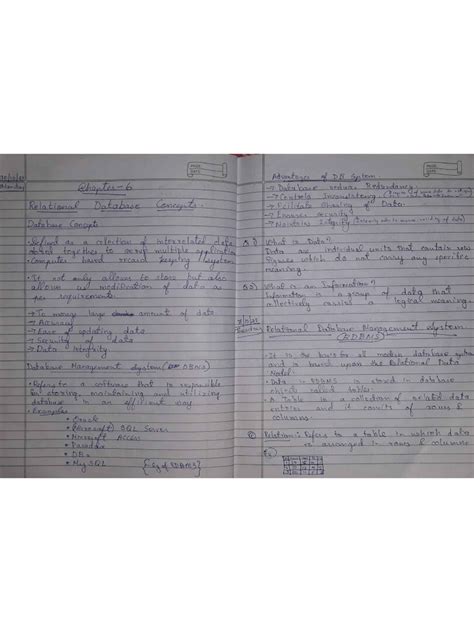 Chapter-6
Relational Database Concepts.
Database Concepts
Defined as a collection of interrelated data
stored together to serve multiple application
computer based record keeping system
It not only allows to store but also
allows us modification of data as
per requirements.
→ To manage large amount of data
→ Accuracy
→ Ease of updating data
→ Security of data
→ Data integrity
Database Management System (DBMS)
Refers to a software that is responsible
for storing, maintaining and utilizing
database in an efficient way
Examples
Oracle
Microsoft SQL Server
Microsoft Access
Paradox
DB2
My SQL
{Eg of RDBMS}
Advantages of DB System
→ Database reduces Redundancy
→ Controls Inconsistency
→ Facilitate Sharing of Data.
→ Ensures security
→ Maintains Integrity
Q1) What is Data?
Data are individual units that contain raw
which do not carry any specific
meaning.
Q2) What is an Information?
Information is a group of data that
collectively carries a logical meaning
Relational Database Management System
(RDBMS)
It is the basis for all modern database systems
and is based upon the Relational Data
Model.
Data in RDBMS is stored in database
objects called tables.
A Table is a collection of related data
entries and it consists of rows &
columns.
Relation: Refers to a table in which data
is arranged in rows & columns
Eg